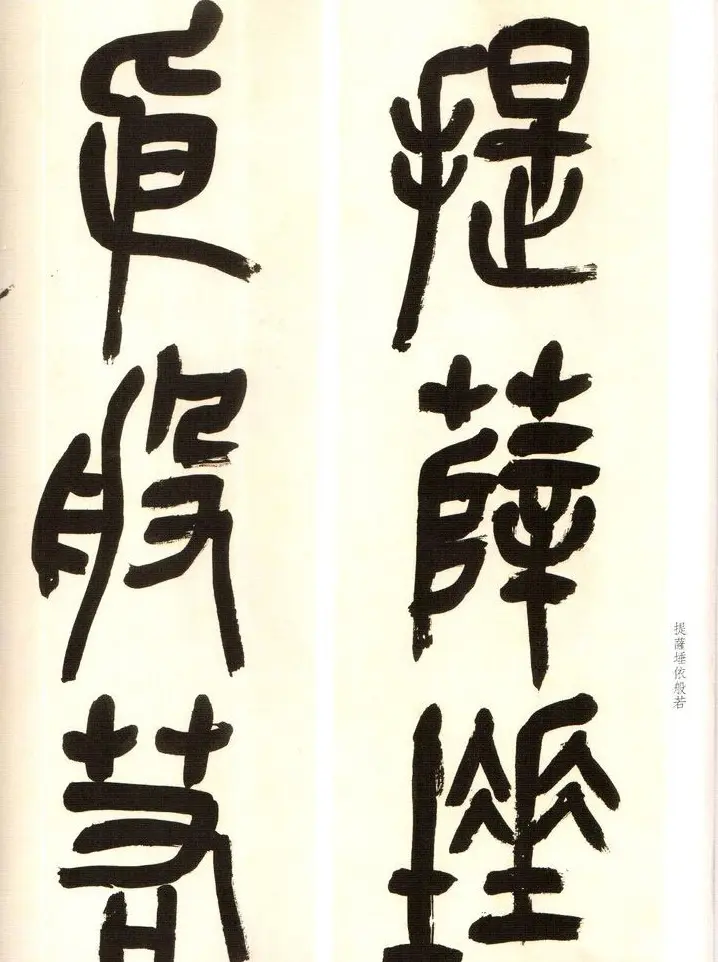 提薩埵
依般若
提薩埵依般若